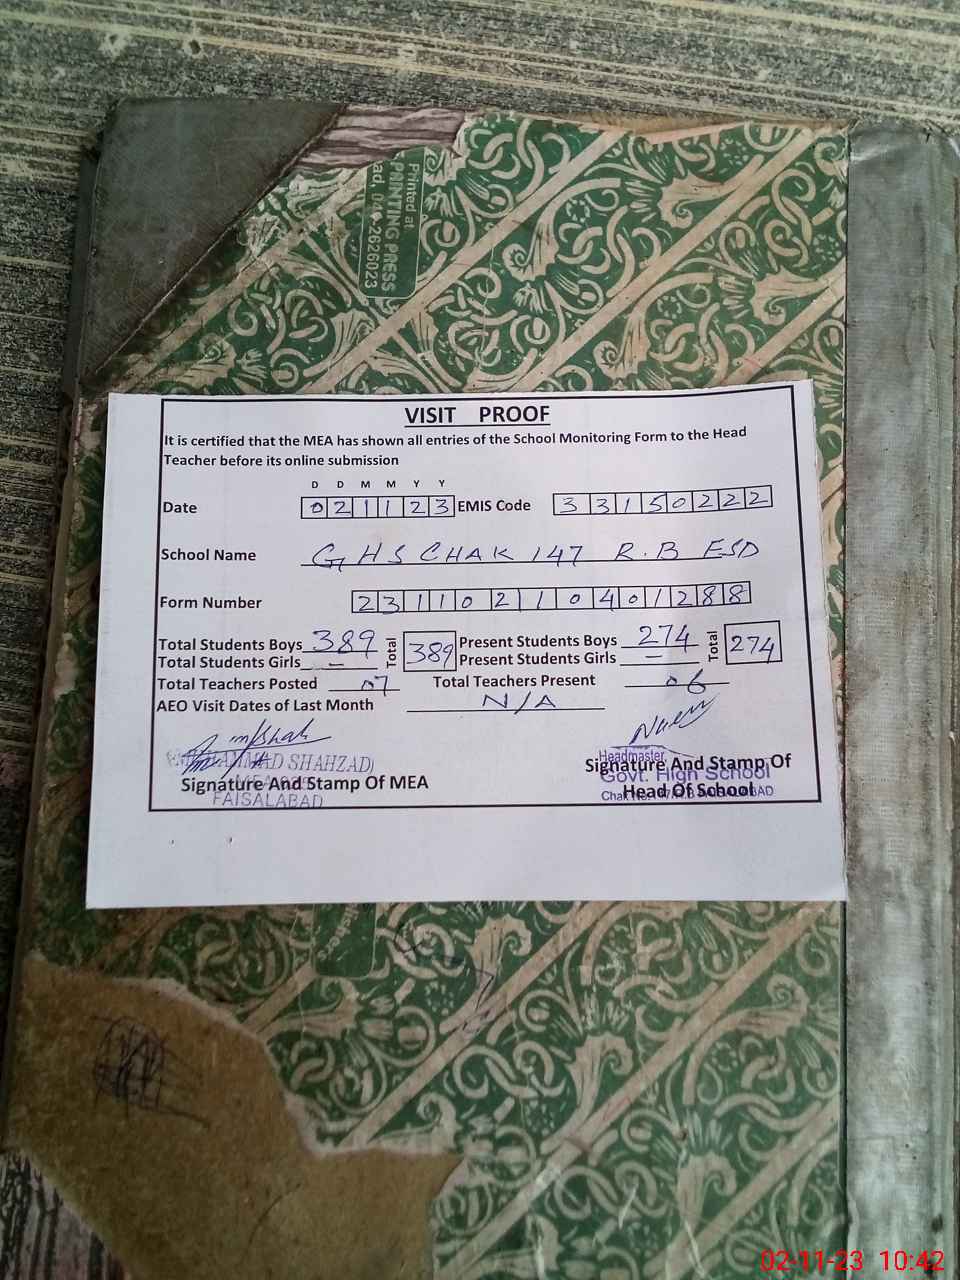 Printed at
PRINTING PRESS
ad, 04 -2626023
VISIT PROOF
It is certified that the MEA has shown all entries of the School Monitoring Form to the Head
Teacher before its online submission
D D M M Y Y
Date 0 2 1 1 2 3 EMIS Code 3 3 1 5 0 2 2 2
School Name GHS CHAK 147 R.B FSD
Form Number 2 3 1 1 0 2 1 0 4 0 1 2 8 8
Total Students Boys 389 Total 389 Present Students Boys 274 Total 274
Total Students Girls - Present Students Girls -
Total Teachers Posted 07 Total Teachers Present 06
AEO Visit Dates of Last Month N/A
SHAHZAD)
Signature And Stamp Of MEA
FAISALABAD
Headmaster
Signature And Stamp Of
Govt. High School
Head Of School
02-11-23 10:42